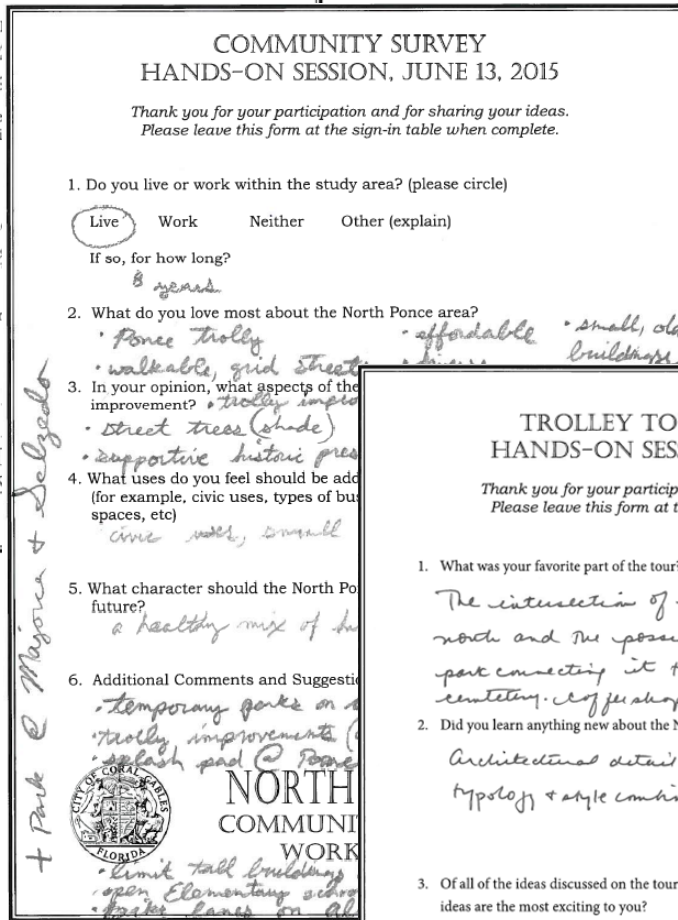 COMMUNITY SURVEY
HANDS-ON SESSION, JUNE 13, 2015
Thank you for your participation and for sharing your ideas.
Please leave this form at the sign-in table when complete.
1. Do you live or work within the study area? (please circle)
Live Work Neither Other (explain)
If so, for how long?
8 years
2. What do you love most about the North Ponce area?
• Ponce trolly • affordable • small, old
• walkable, grid streets buildings
3. In your opinion, what aspects of the
improvement? • trolly impro
• street trees (shade)
• supportive historic pres
4. What uses do you feel should be add
(for example, civic uses, types of bu
spaces, etc)
civic uses, small
5. What character should the North Po
future?
a healthy mix of
6. Additional Comments and Suggestio
• temporary parks on
• trolly improvements (
• splash pad @ Ponce
CITY OF CORAL GABLES
FLORIDA
NORTH
COMMUNI
WORK
• limit tall buildings
• open Elementary school
• lanes on
+ Park @ Majorca + Salzedo
TROLLEY TO
HANDS-ON SES
Thank you for your particip
Please leave this form at t
1. What was your favorite part of the tour?
The intersection of
north and the possi
park connecting it t
cemetery. coffee shop
2. Did you learn anything new about the N
Architectural detail
typology + style combi
3. Of all of the ideas discussed on the tour
ideas are the most exciting to you?